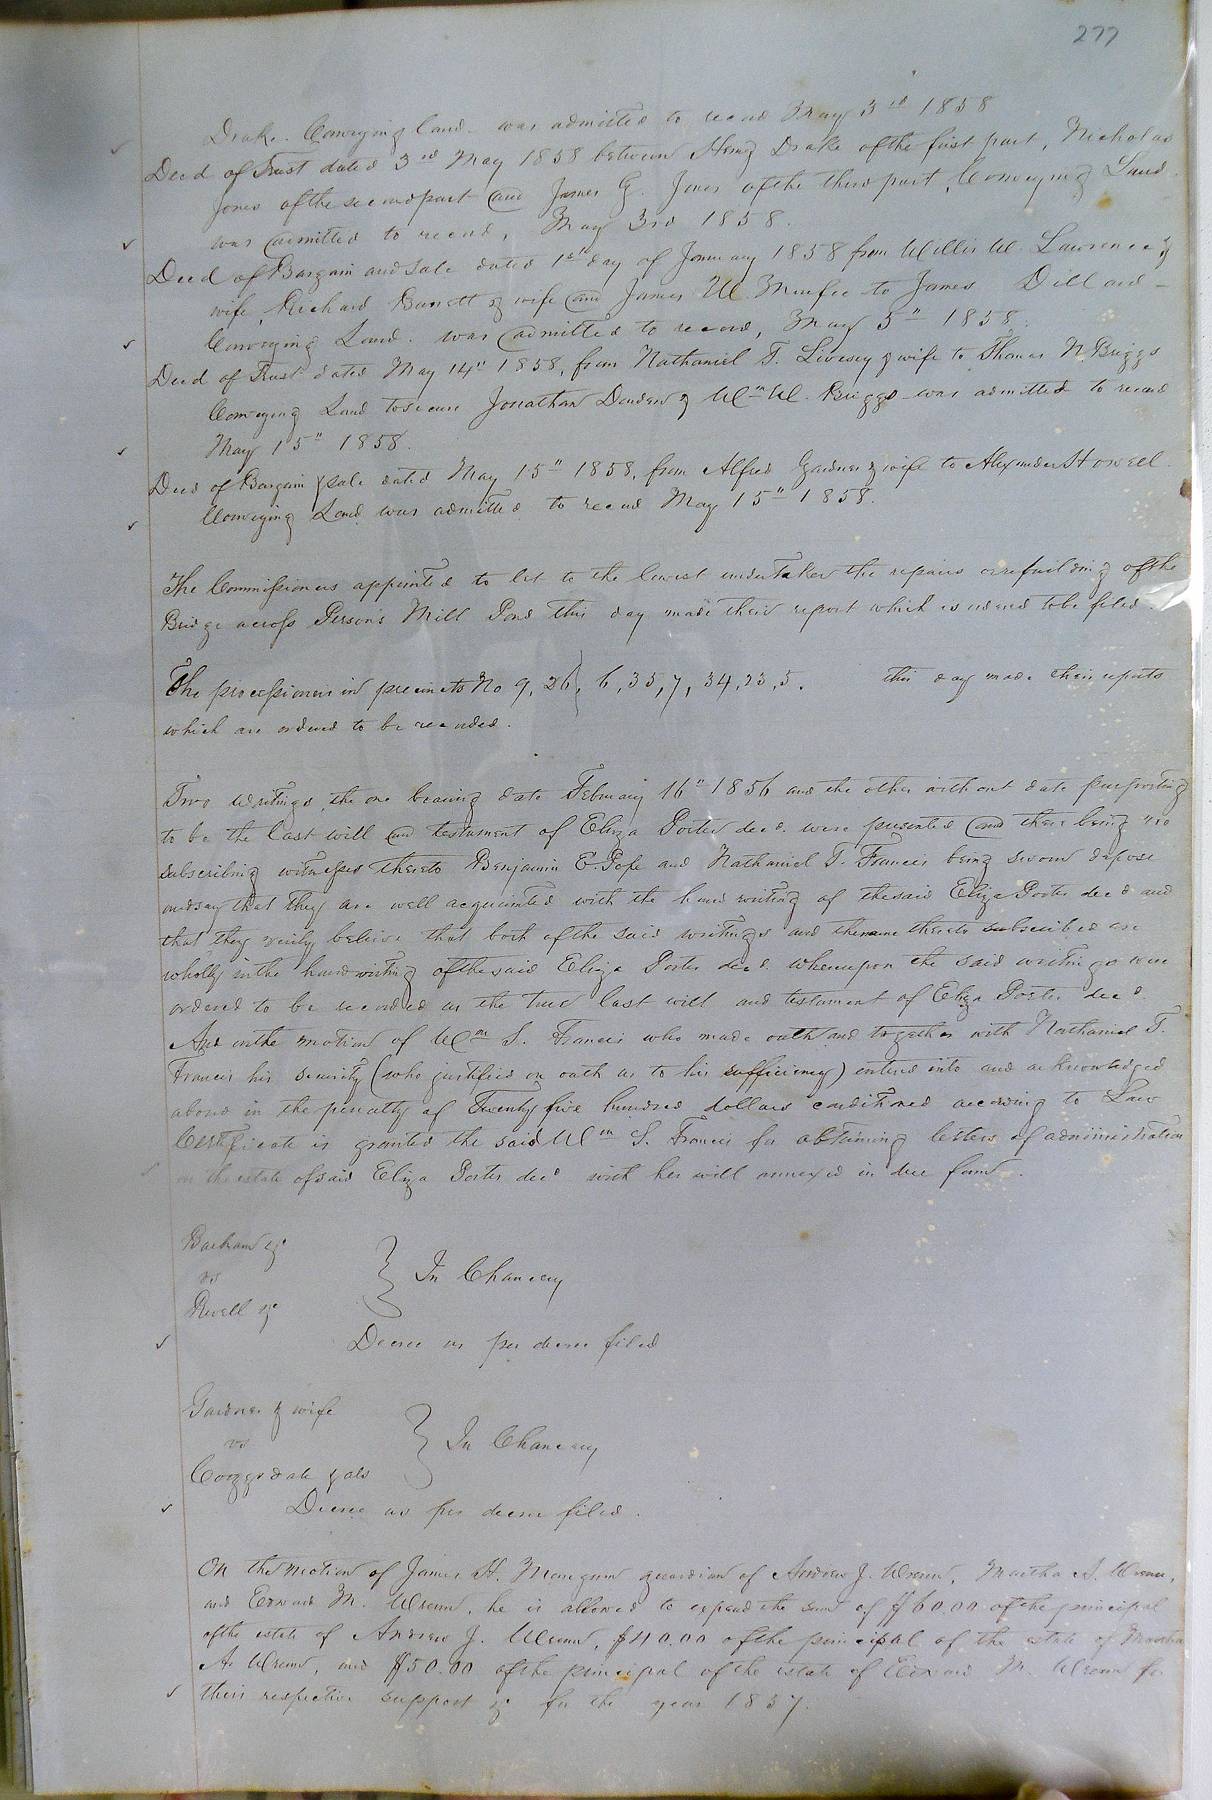 277
Drake. Conveying land was admitted to record May 3rd 1858
Deed of Trust dated 3rd May 1858 between Henry Drake of the first part, Nicholas
Jones of the second part and James G. Jones of the third part, Conveying Land
was admitted to record, May 3rd 1858.
Deed of Bargain and sale dated 1st day of January 1858 from Willis W. Lawrence &
wife, Richard Barrett & wife and James W. Murfee to James Dillard
Conveying Land. was admitted to record, May 5" 1858.
Deed of Trust dated May 14" 1858, from Nathaniel T. Livesay & wife to Thomas N. Briggs
Conveying Land to secure Jonathan Darden & Wm W. Briggs was admitted to record
May 15" 1858.
Deed of Bargain & sale dated May 15" 1858, from Alfred Gardner & wife to Alexander Howell
Conveying Land was admitted to record May 15" 1858.
The Commissioners appointed to let to the lowest undertaker the repairs or refuilding of the
Bridge across Person's Mill Pond this day made their report which is ordered to be filed.
The processioners in precincts No 9, 26, 6, 35, 7, 34, 23, 5. this day made their reports
which are ordered to be recorded.
Two writings, the one bearing date February 16" 1856 and the other without date purporting
to be the last will and testament of Eliza Porter decd. were presented and there being no
subscribing witnesses thereto Benjamin E. Pope and Nathaniel T. Francis being sworn depose
and say that they are well acquainted with the hand writing of the said Eliza Porter decd and
that they verily believe that both of the said writings and the name thereto subscribed are
wholly in the handwriting of the said Eliza Porter decd. whereupon the said writings were
ordered to be recorded as the true last will and testament of Eliza Porter decd.
And on the motion of Wm S. Francis who made oath and together with Nathaniel T.
Francis his security (who justified on oath as to his sufficiency) entered into and acknowledged
a bond in the penalty of Twenty five hundred dollars conditioned according to Law
Certificate is granted the said Wm S. Francis for obtaining letters of administration
on the estate of said Eliza Porter decd with her will annexed in due form.
Barham &c
vs
Revell &c
} In Chancery
Decree as per decree filed
Gardner & wife
vs
& als
} In Chancery
Decree as per decree filed.
On the motion of James H. Mangum guardian of Andrew J. Wrenn, Martha A. Wrenn,
and Edward M. Wrenn, he is allowed to expend the sum of $60.00 of the principal
of the estate of Andrew J. Wrenn, $40.00 of the principal of the estate of Martha
A. Wrenn, and $50.00 of the principal of the estate of Edward M. Wrenn for
their respective support &c for the year 1857.